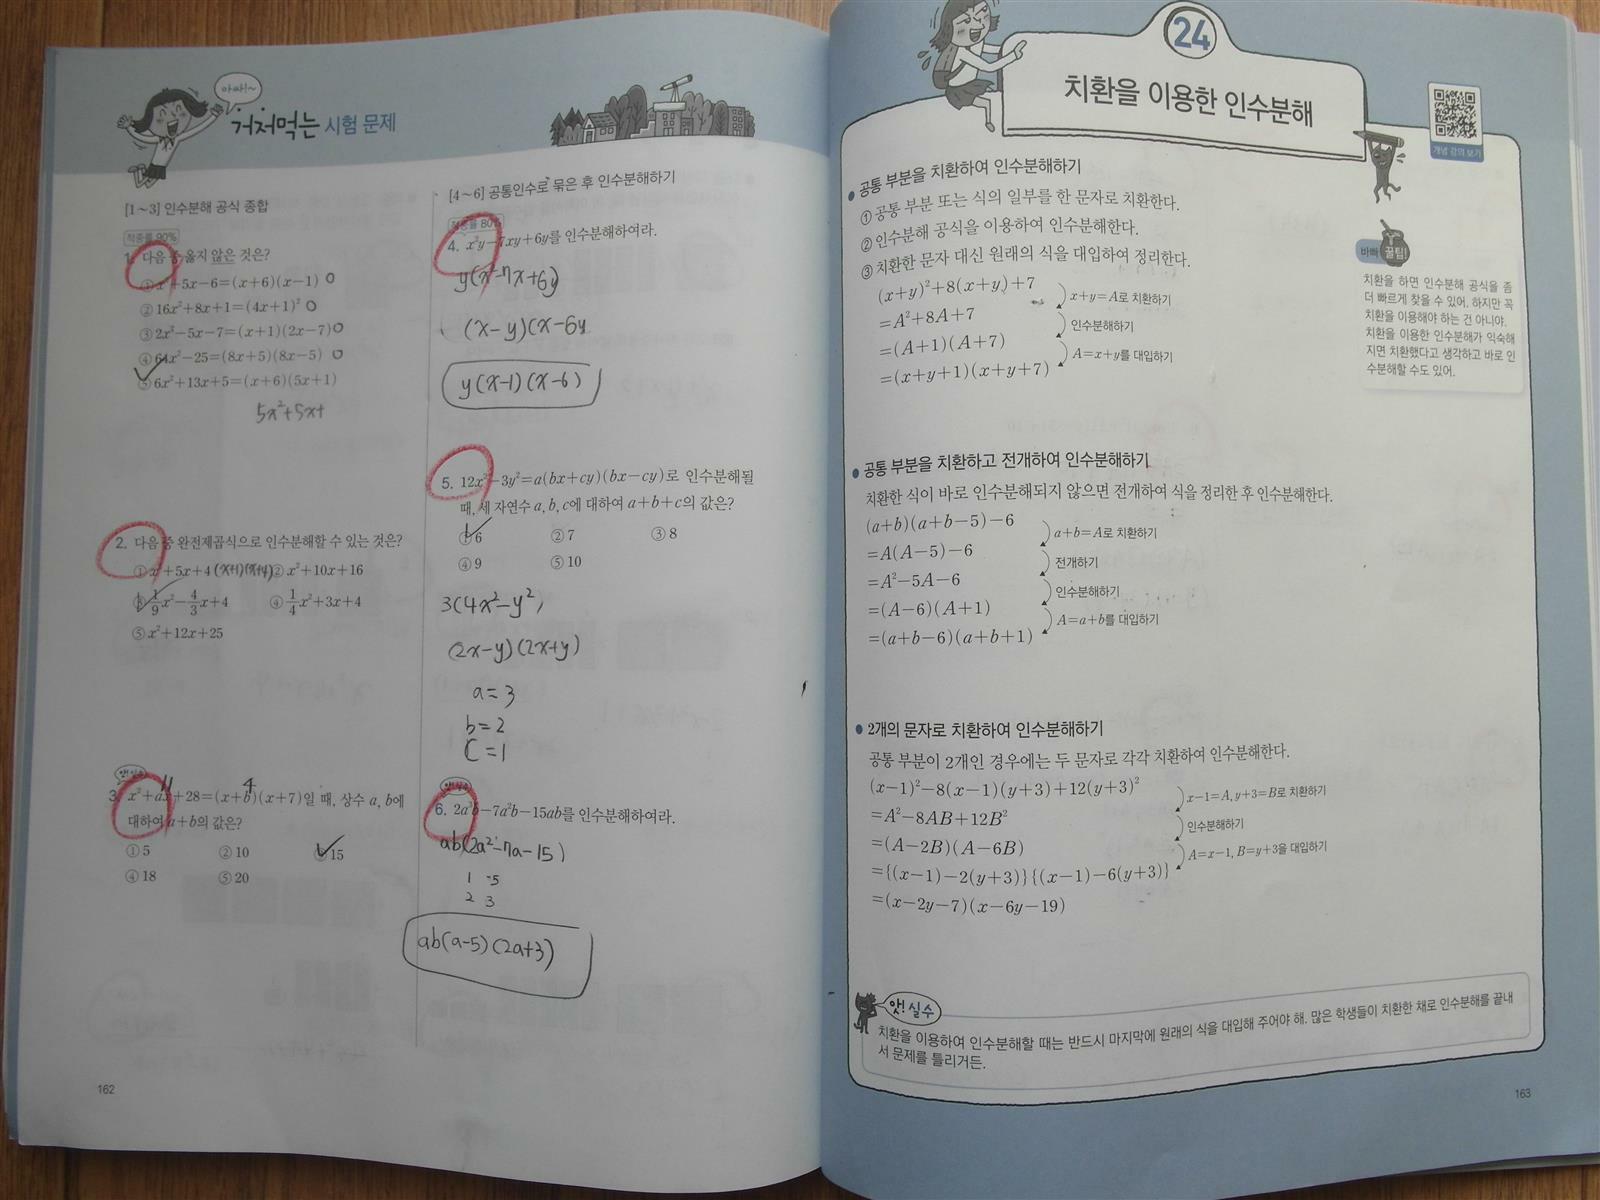 아싸!~
거저먹는 시험 문제
[1~3] 인수분해 공식 종합
적중률 90%
1. 다음 중 옳지 않은 것은?
① x²+5x-6=(x+6)(x-1) O
② 16x²+8x+1=(4x+1)² O
③ 2x²-5x-7=(x+1)(2x-7) O
④ 64x²-25=(8x+5)(8x-5) O
⑤ 6x²+13x+5=(x+6)(5x+1)
5x²+5x+
2. 다음 중 완전제곱식으로 인수분해할 수 있는 것은?
① x²+5x+4 (x+1)(x+4) ② x²+10x+16
③ 1/9x²-4/3x+4 ④ 1/4x²+3x+4
⑤ x²+12x+25
앗!실수
11 4
3. x²+ax+28=(x+b)(x+7)일 때, 상수 a, b에
대하여 a+b의 값은?
① 5 ② 10 ③ 15
④ 18 ⑤ 20
162
[4~6] 공통인수로 묶은 후 인수분해하기
적중률 80%
4. x²y-7xy+6y를 인수분해하여라.
y(x²-7x+6y)
(x-y)(x-6y
y(x-1)(x-6)
5. 12x²-3y²=a(bx+cy)(bx-cy)로 인수분해될
때, 세 자연수 a, b, c에 대하여 a+b+c의 값은?
① 6 ② 7 ③ 8
④ 9 ⑤ 10
3(4x²-y²)
(2x-y)(2x+y)
a=3
b=2
C=1
앗!실수
6. 2a³b-7a²b-15ab를 인수분해하여라.
ab(2a²-7a-15)
1 -5
2 3
ab(a-5)(2a+3)
24
치환을 이용한 인수분해
개념 강의 보기
● 공통 부분을 치환하여 인수분해하기
① 공통 부분 또는 식의 일부를 한 문자로 치환한다.
② 인수분해 공식을 이용하여 인수분해한다.
③ 치환한 문자 대신 원래의 식을 대입하여 정리한다.
(x+y)²+8(x+y)+7
x+y=A로 치환하기
=A²+8A+7
인수분해하기
=(A+1)(A+7)
A=x+y를 대입하기
=(x+y+1)(x+y+7)
바빠 꿀팁!
치환을 하면 인수분해 공식을 좀
더 빠르게 찾을 수 있어. 하지만 꼭
치환을 이용해야 하는 건 아니야.
치환을 이용한 인수분해가 익숙해
지면 치환했다고 생각하고 바로 인
수분해할 수도 있어.
● 공통 부분을 치환하고 전개하여 인수분해하기
치환한 식이 바로 인수분해되지 않으면 전개하여 식을 정리한 후 인수분해한다.
(a+b)(a+b-5)-6
a+b=A로 치환하기
=A(A-5)-6
전개하기
=A²-5A-6
인수분해하기
=(A-6)(A+1)
A=a+b를 대입하기
=(a+b-6)(a+b+1)
● 2개의 문자로 치환하여 인수분해하기
공통 부분이 2개인 경우에는 두 문자로 각각 치환하여 인수분해한다.
(x-1)²-8(x-1)(y+3)+12(y+3)²
x-1=A, y+3=B로 치환하기
=A²-8AB+12B²
인수분해하기
=(A-2B)(A-6B)
A=x-1, B=y+3을 대입하기
={(x-1)-2(y+3)}{(x-1)-6(y+3)}
=(x-2y-7)(x-6y-19)
앗!실수
치환을 이용하여 인수분해할 때는 반드시 마지막에 원래의 식을 대입해 주어야 해. 많은 학생들이 치환한 채로 인수분해를 끝내
서 문제를 틀리거든.
163